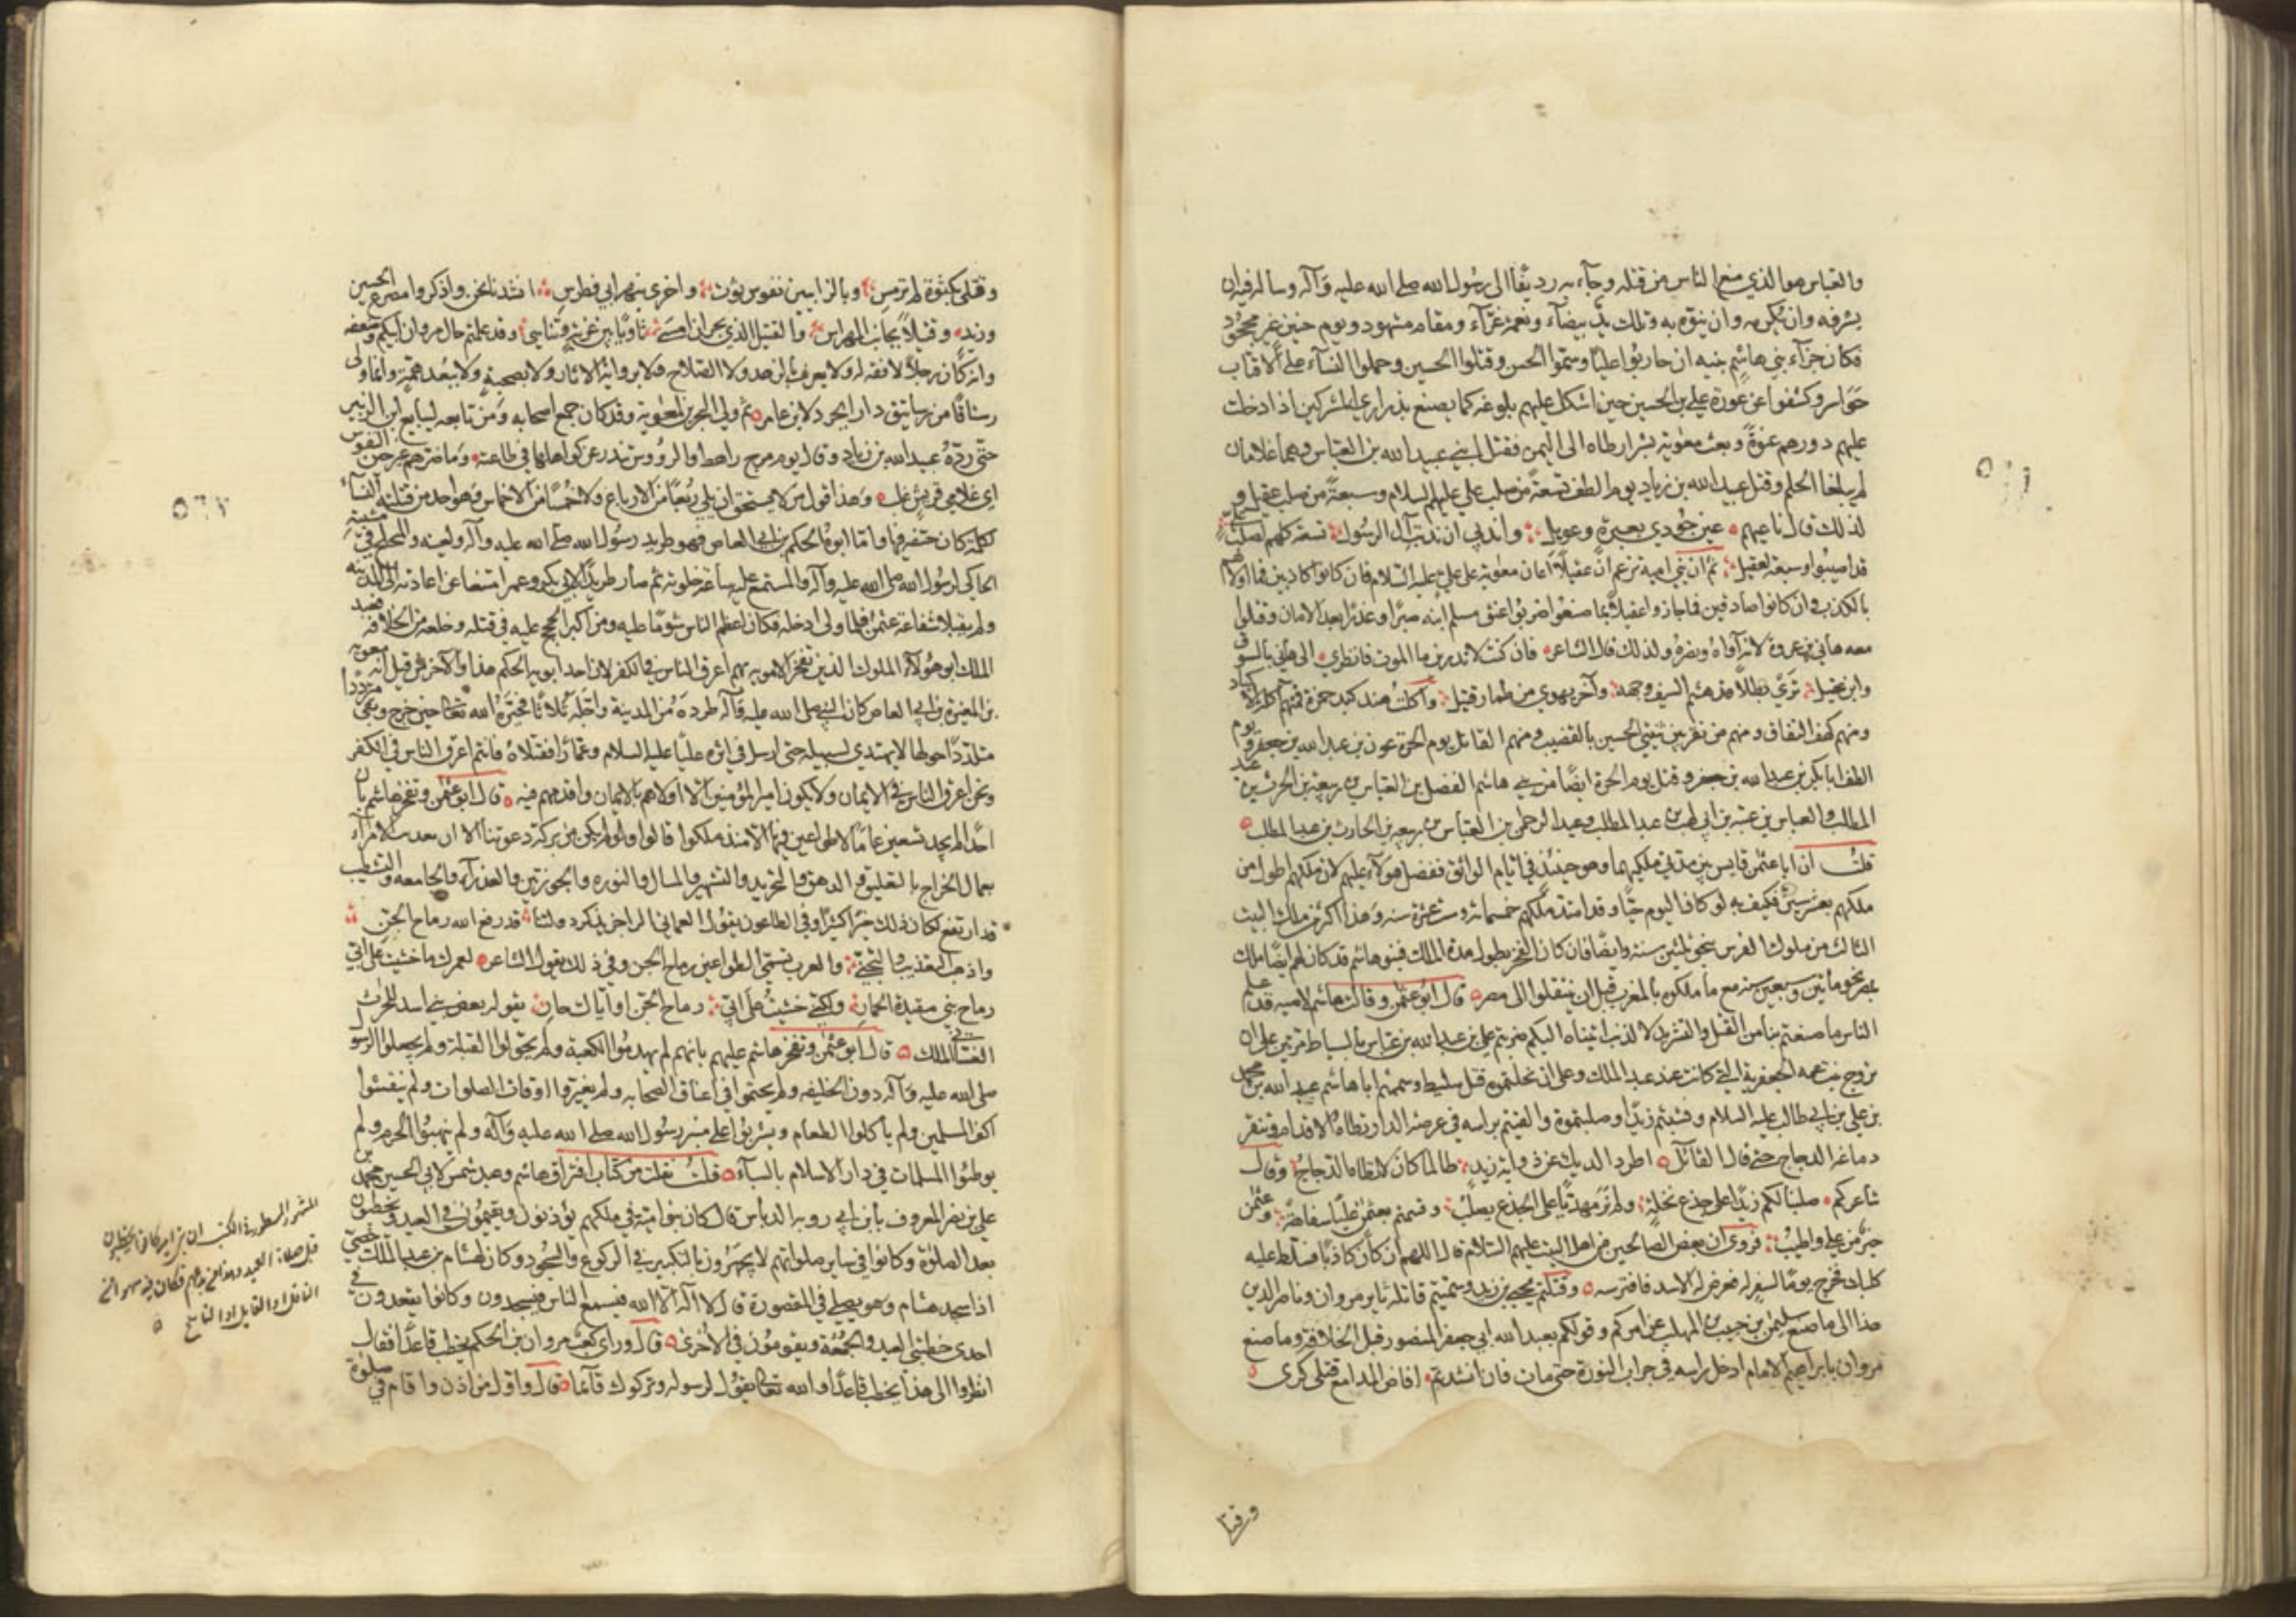 والعباس هو الذي منع الناس من قتله وجاء به رديفا الى رسول الله صلى الله عليه وآله وسأله فيه ان
يشرفه وان يكرمه وان ينوه به وتلك يد بيضاء ونعمة غراء ومقام مشهود ويوم حنين غير مجحود
فكان جزاء بني هاشم من بنيه ان حاربوا عليا وسموا الحسن وقتلوا الحسين وحملوا النساء على الاقتاب
حواسر وكشفوا عن عورة علي بن الحسين حين اشكل عليهم بلوغه كما يصنع بذراري المشركين اذا دخلت
عليهم دورهم عنوة وبعث معوية بسر ارطاه الى اليمن فقتل ابني عبيد الله بن العباس وهما غلامان
لم يبلغا الحلم وقتل عبيد الله بن زياد يوم الطف تسعة من صلب علي عليهم السلام وسبعة من صلب عقيل و
لذلك قال ناعيهم عين جودي بعبرة وعويل واندبي ان ندبت آل الرسول تسعة كلهم لصلب علي
قد اصيبوا وسبعة لعقيل ثم ان بني امية تزعم ان عقيلا اعان معوية على علي عليه السلام فان كانوا كاذبين فما اولاهم
بالكذب وان كانوا صادقين فما جازوا عقيلا بما صنع اذ ضربوا عنق مسلم ابنه صبرا وغدرا بعد الامان وقتلوا
معه هاني بن عروة لانه آواه ونصره ولذلك قال الشاعر فان كنت لا تدرين ما الموت فانظري الى هاني بالسوق
وابن عقيل تري بطلا قد هشم السيف وجهه وآخر يهوي من طمار قتيل واكلت هند كبد حمزة فمنهم اكلة الاكباد
ومنهم كهف النفاق ومنهم من نقر بين ثنيتي الحسين بالقضيب ومنهم القاتل يوم الحرة عون بن عبد الله بن جعفر ويوم
الطف ابا بكر بن عبد الله بن جعفر وقتل يوم الحرة ايضا من بني هاشم الفضل بن العباس بن ربيعة بن الحرث بن عبد
المطلب والعباس بن عتبة بن ابي لهب بن عبد المطلب وعبد الرحمن بن العباس بن ربيعه بن الحارث بن عبد المطلب
قلت ان ابا عثمن قايس بين مدتي ملكيهما وهو حينئذ في ايام الواثق ففضل هؤلاء عليهم لان ملكهم اطول من
ملكهم بعشر سنين فكيف به لو كان اليوم حيا وقد امتد ملكهم خمسمائة وست عشرة سنه وهذا اكثر من ملك البيت
الثالث من ملوك الفرس بنحو ثلثين سنة وايضا فان كان الفخر بطول مدة الملك فبنو هاشم قد كان لهم ايضا ملك
بمصر نحو مأتين وسبعين سنه مع ما ملكوه بالمغرب قبل ان ينتقلوا الى مصر قال ابو عثمن وقالت هاشم لامية قد علم
الناس ما صنعتم بنا من القتل والتشريد لا لذنب اتيناه اليكم ضربتم علي بن عبد الله بن عباس بالسياط مرتين على ان
تزوج بنت عمه الجعفرية التي كانت عند عبد الملك وعلى ان نحلتموه قتل سليط وسممتم ابا هاشم عبد الله بن محمد
بن علي بن ابي طالب عليه السلام ونبشتم زيدا وصلبتموه والقيتم براسه في عرصه الدار توطاه الاقدام وتنقر
دماغه الدجاج حتى قال القائل اطرد الديك عن ذؤابة زيد طالما كان لا تطاه الدجاج وقال
شاعركم صلبنا لكم زيدا على جذع نخلة ولم نر مهديا على الجذع يصلب وقستم بعثمن عليا سفاهة وعثمن
خير من علي واطيب فروي ان بعض الصالحين من اهل البيت عليهم السلام قال اللهم ان كان كاذبا فسلط عليه
كلبك فخرج يوما لسفر له فعرض له الاسد فافترسه وقتلتم يحيي بن زيد وسميتم قاتله ثاير مروان وناصر الدين
هذا الى ما صنع سليمن بن حبيب بن المهلب عن امركم وقولكم بعبد الله ابي جعفر المنصور قبل الخلافة وما صنع
مروان بابراهيم الامام ادخل راسه في جراب النورة حتى مات فان انشدتم افاض المدامع قتلى كدى
وقتلى
وقتلى بكثوة لم ترمس وبالزابيين نفوس ثوت واخرى بنهر ابي فطرس انشدنا نحن واذكروا مصرع الحسين
وزيد وقتيلا بجانب المهراس والقتيل الذي بحران امسى ثاويا بين غربة وتناسي وقد علمتم حال مروان ابيكم وضعفه
وانه كان رجلا لا فقه له ولا يعرف بالزهد ولا الصلاح ولا برواية الاثار ولا بصحبة ولا ببعد همة وانما ولي
رستاقا من رساتيق دار ابجرد لابن عامر ثم ولي البحرين لمعوية وقد كان جمع اصحابه ومن تابعه ليبايع ابن الزبير
حتى رده عبيد الله بن زياد وقال يوم مرج راهط والرؤوس تندر عن كواهلها في طاعته وما ضرهم غير حين النفوس
اي غلامي قريش غلب وهذا قول من لا يستحق ان يلي ربعا من الارباع ولا خمسا من الاخماس وهو احد من قتلته النساء
لكلمة كان حتفه فيها واما ابوه الحكم بن ابي العاص فهو طريد رسول الله صلى الله عليه وآله ولعينه والمتخلج في مشيته
الحاكي لرسول الله صلى الله عليه وآله والمستمع عليه ساعة خلوته ثم صار طريدا لابي بكر وعمر امتنعا عن اعادته الى المدينه
ولم يقبلا شفاعة عثمن فلما ولي ادخله فكان اعظم الناس شوما عليه ومن اكبر الحجج عليه في قتله وخلعه من الخلافه فعبد
الملك ابو هؤلاء الملوك الذين تفتخر الاموية بهم اعرق الناس في الكفر لان احد ابويه الحكم هذا والآخر من قبل امه معوية
بن المغيرة بن ابي العاص كان النبي صلى الله عليه وآله طرده من المدينة واجله ثلاثا فحيره الله تعالى حين خرج وبقي مترددا
متلددا حولها لا يهتدي لسبيله حتى ارسل في اثره عليا عليه السلام وعمارا فقتلاه فانتم اعرق الناس في الكفر
ونحن اعرق الناس في الايمان ولا يكون امير المؤمنين الا اولاهم بالايمان واقدمهم فيه قال ابو عثمن وتفخر هاشم بان
احدا لم يجد تسعين عاما لا طواعين فيها الا منذ ملكوا قالوا ولو لم يكن من بركة دعوتنا الا ان تعذيب الامراء
بعمال الخراج بالتعليق والدهق والتجريد والتشهير والمسال والنوره والجوزتين والعذراء والجامعه والتشطيب
قد ارتفع لكان ذلك خيرا كثيرا وفي الطاعون يقول العماني الراجز يذكر دولتنا قد رفع الله رماح الجن
واذهب التعذيب والتجني والعرب تسمي الطواعين رماح الجن وفي ذلك يقول الشاعر لعمرك ما خشيت على ابي
رماح بني مقيدة الحمار ولكني خشيت على ابي رماح الجن او اياك حار يقوله بعض بني اسد للحرث
الغساني الملك قال ابو عثمن وتفخر هاشم عليهم بانهم لم يهدموا الكعبة ولم يحولوا القبلة ولم يجعلوا الرسول
صلى الله عليه وآله دون الخليفه ولم يختموا في اعناق الصحابه ولم يغيروا اوقات الصلوات ولم ينقشوا
اكف المسلمين ولم ياكلوا الطعام ويشربوا على منبر رسول الله صلى الله عليه وآله ولم ينهبوا الحرم ولم
يوطئوا المسلمات في دار الاسلام بالسباء قلت نقلت من كتاب افتراق هاشم وعبد شمس لابي الحسين محمد بن
علي بن نصر المعروف بابن ابي روبه الدباس قال كان بنو امية في ملكهم يؤذنون ويقيمون في العيد ويخطبون
بعد الصلوة وكانوا في ساير صلواتهم لا يجهرون بالتكبير في الركوع والسجود وكان لهشام بن عبد الملك خصي
اذا سجد هشام وهو يصلي في المقصورة قال لا اله الا الله فيسمع الناس فيسجدون وكانوا يقعدون في
احدى خطبتي العيد والجمعة ويقومون في الاخرى قال وراى كعب مروان بن الحكم يخطب قاعدا فقال
انظروا الى هذا يخطب قاعدا والله تعالى يقول لرسوله وتركوك قائما قال واول من اذن واقام في صلوة
المشهور المسطور في الكتب ان بني اميه كانوا يخطبون
قبل صلاة العيد
الناقل او القايل او الناسخ